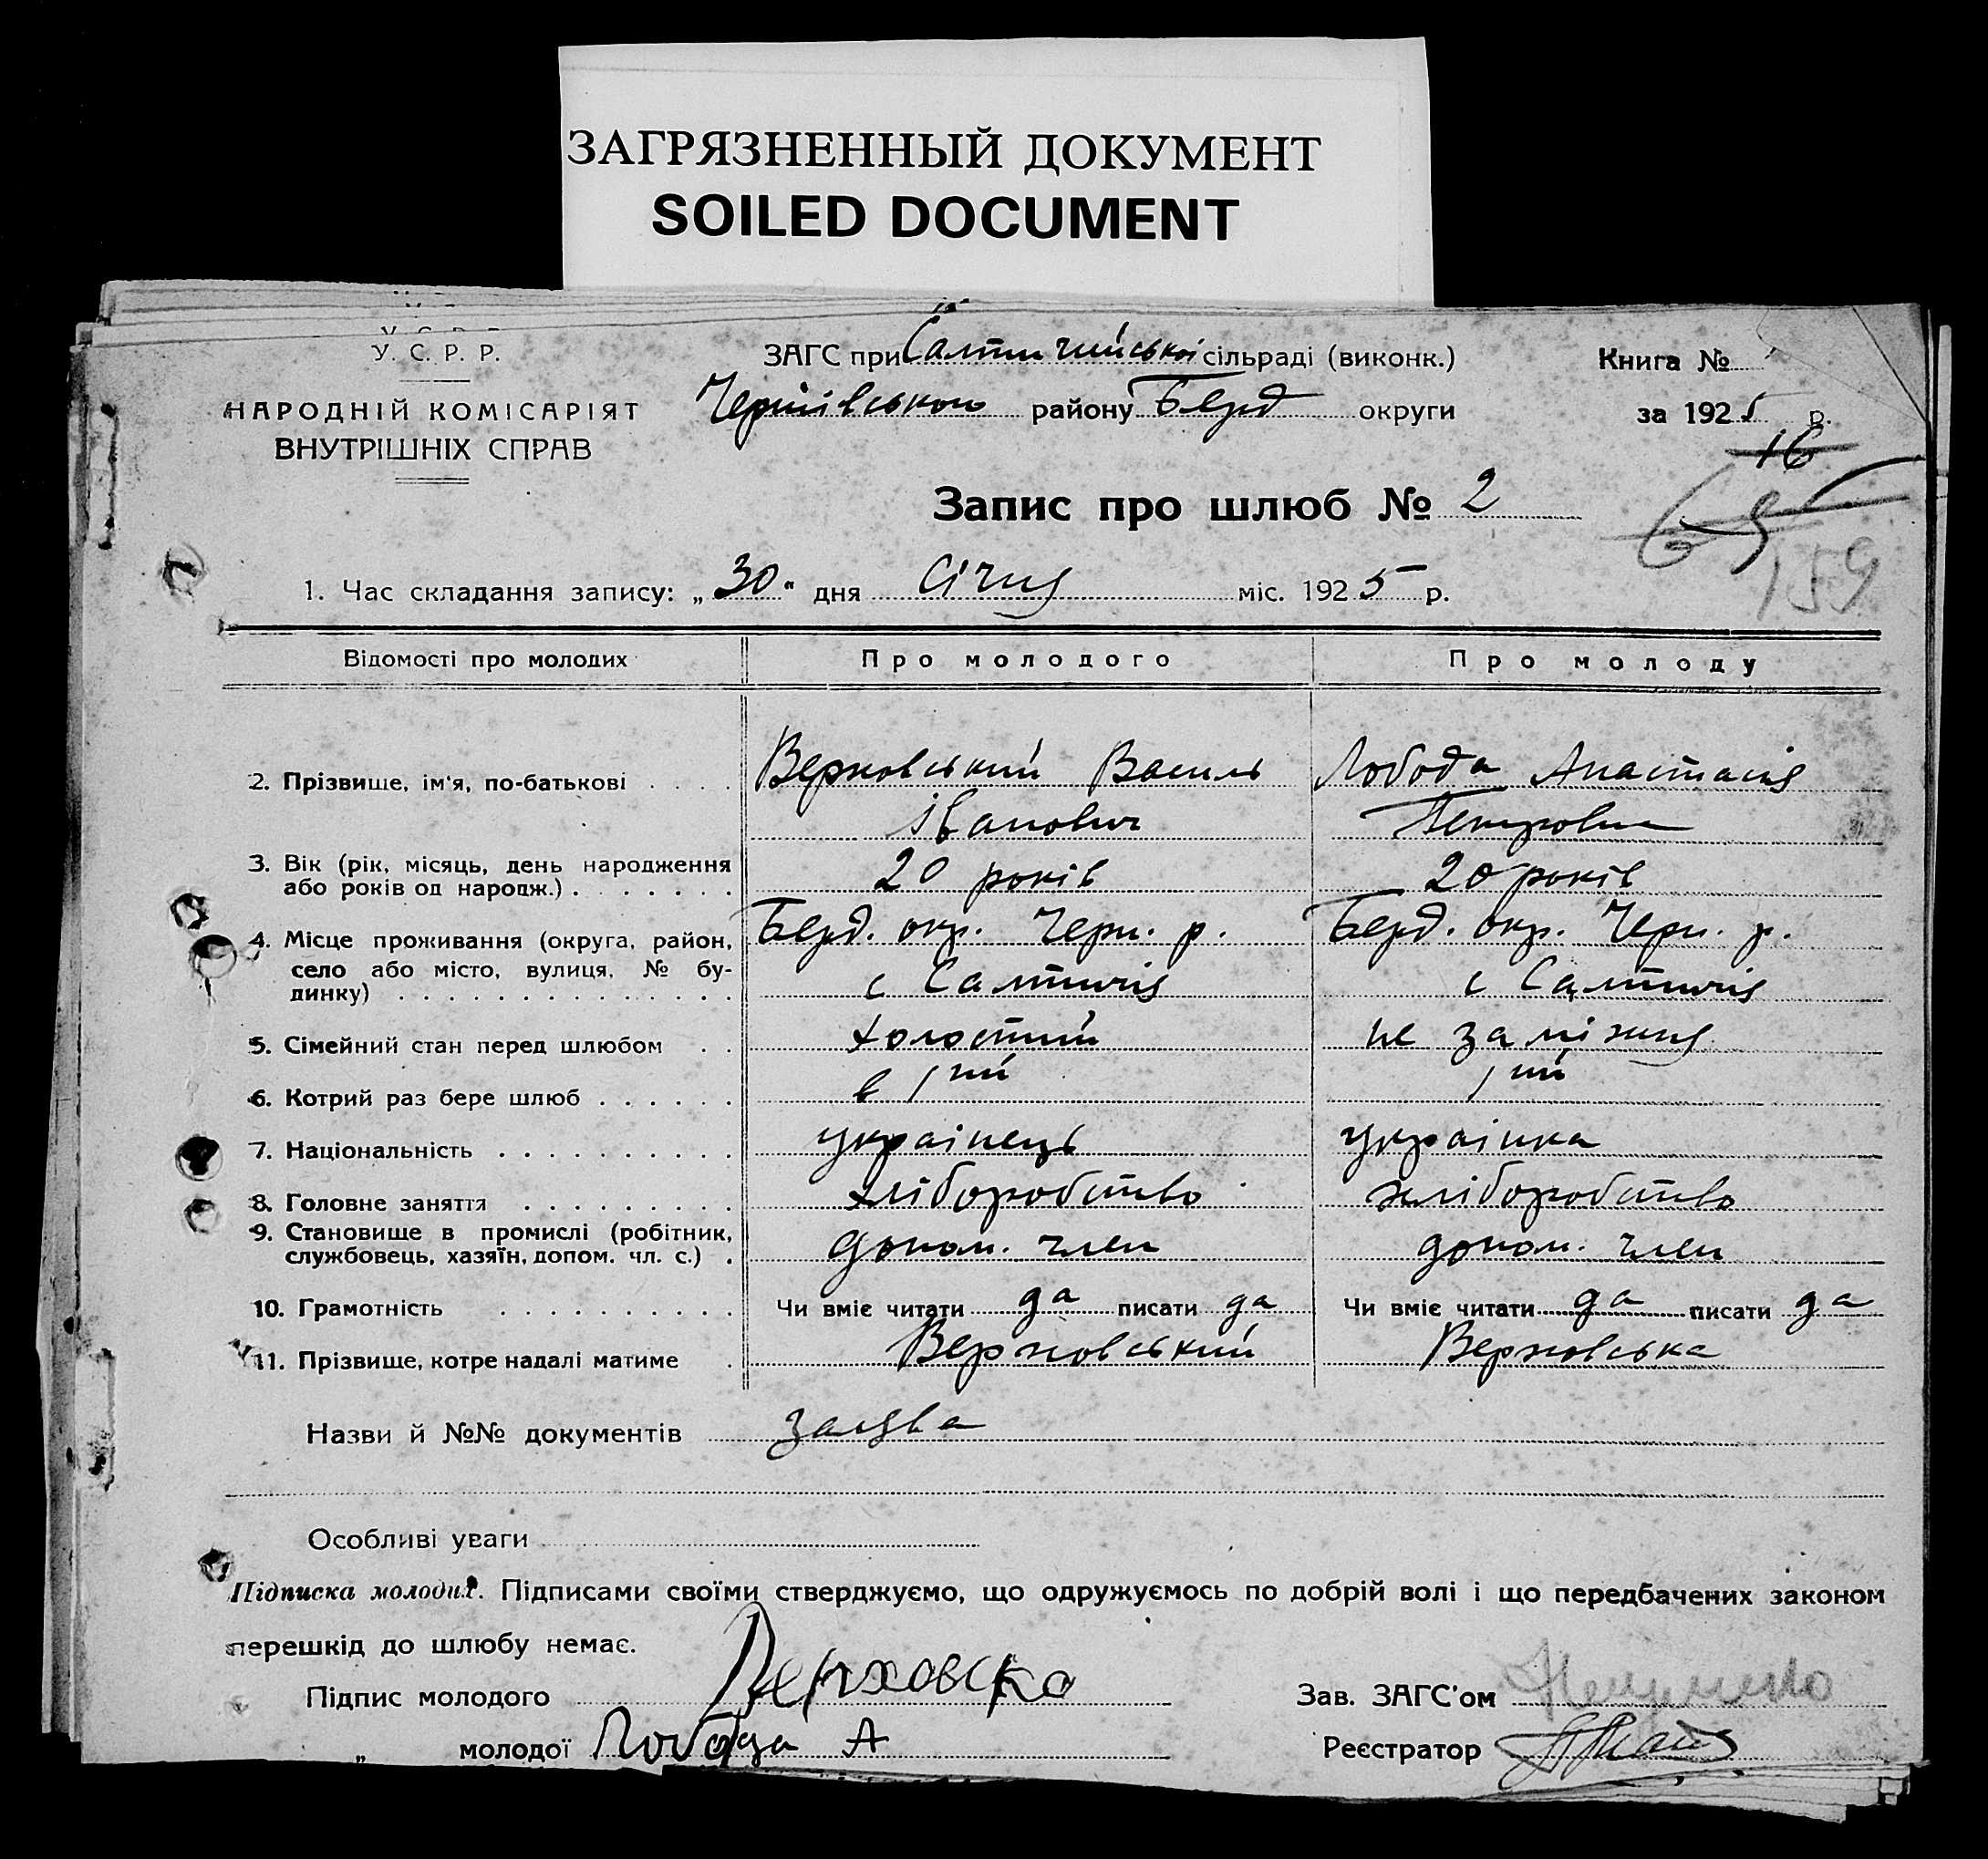 ЗАГРЯЗНЕННЫЙ ДОКУМЕНТ
SOILED DOCUMENT
У. С. Р. Р.
НАРОДНІЙ КОМІСАРІЯТ
ВНУТРІШНІХ СПРАВ
ЗАГС при Салтичийської сільраді (виконк.)
Чернівського району Берд округи
Книга №
за 1925 р.
16
65
159
Запис про шлюб № 2
1. Час складання запису: „30“ дня січня міс. 1925 р.
Відомості про молодих Про молодого Про молоду
2. Прізвище, ім'я, по-батькові . . . . Верховський Василь Лобода Анастасія
Іванович Петровна
3. Вік (рік, місяць, день народження
або років од народж.) . . . . . . . 20 років 20 років
4. Місце проживання (округа, район, Берд. окр. Черн. р. Берд. окр. Черн. р.
село або місто, вулиця, № бу-
динку) . . . . . . . . . . . . . . с Салтичія с Салтичія
5. Сімейний стан перед шлюбом . . холостий не заміжня
6. Котрий раз бере шлюб . . . . . . в 1ий 1ий
7. Національність . . . . . . . . . . українець українка
8. Головне заняття . . . . . . . . . хліборобство хліборобство
9. Становище в промислі (робітник,
службовець, хазяїн, допом. чл. с.) . допом. член допом. член
10. Грамотність . . . . . . . . . . Чи вміє читати да писати да Чи вміє читати да писати да
11. Прізвище, котре надалі матиме . Верховський Верховська
Назви й №№ документів заява
Особливі уваги
Підписка молодих. Підписами своїми стверджуємо, що одружуємось по добрій волі і що передбачених законом
перешкід до шлюбу немає.
Підпис молодого Верховско
Зав. ЗАГС'ом
„ молодої Лобода А
Реєстратор